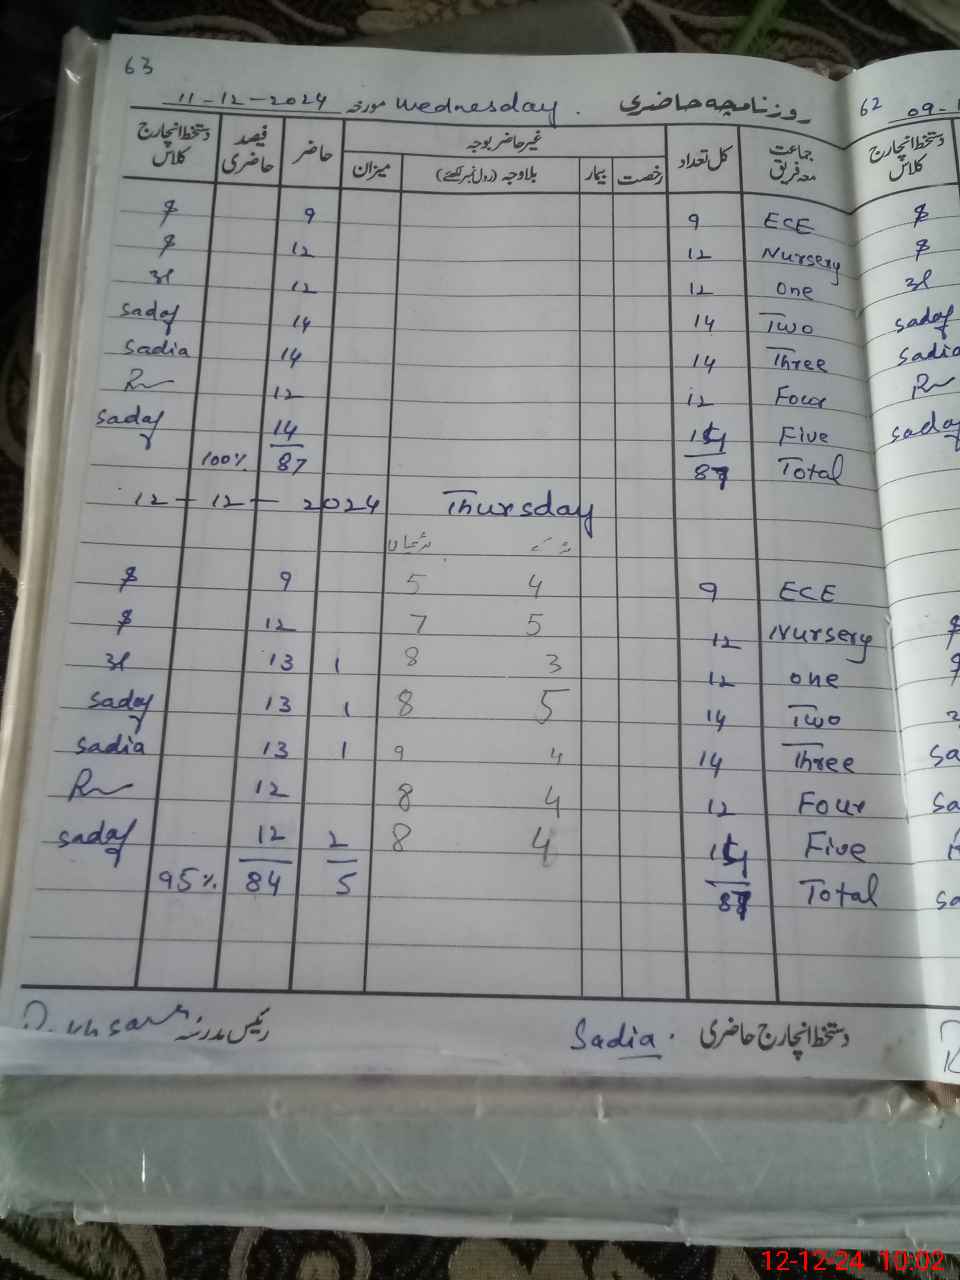 63
روزنامچہ حاضری Wednesday مورخہ 11-12-2024
جماعت معہ فریق کل تعداد غیر حاضر بوجہ حاضر فیصد حاضری دستخط انچارج کلاس
رخصت بیمار بلاوجہ (رول نمبر لکھئے) میزان
ECE 9 9 $
Nursery 12 12 $
one 12 12
Two 14 14 sadaf
Three 14 14 Sadia
Four 12 12
Five 14 14 sadaf
Total 87 87 100%
12-12-2024 Thursday
ECE 9 4 5 9 $
Nursery 12 5 7 12 $
one 12 3 8 1 13
Two 14 5 8 1 13 sadaf
Three 14 4 9 1 13 Sadia
Four 12 4 8 12
Five 14 4 8 2 12 sadaf
Total 87 5 84 95%
دستخط انچارج حاضری Sadia رئیس مدرسہ
62 09-1
دستخط انچارج کلاس
$
$
sadaf
Sadia
12-12-24 10:02